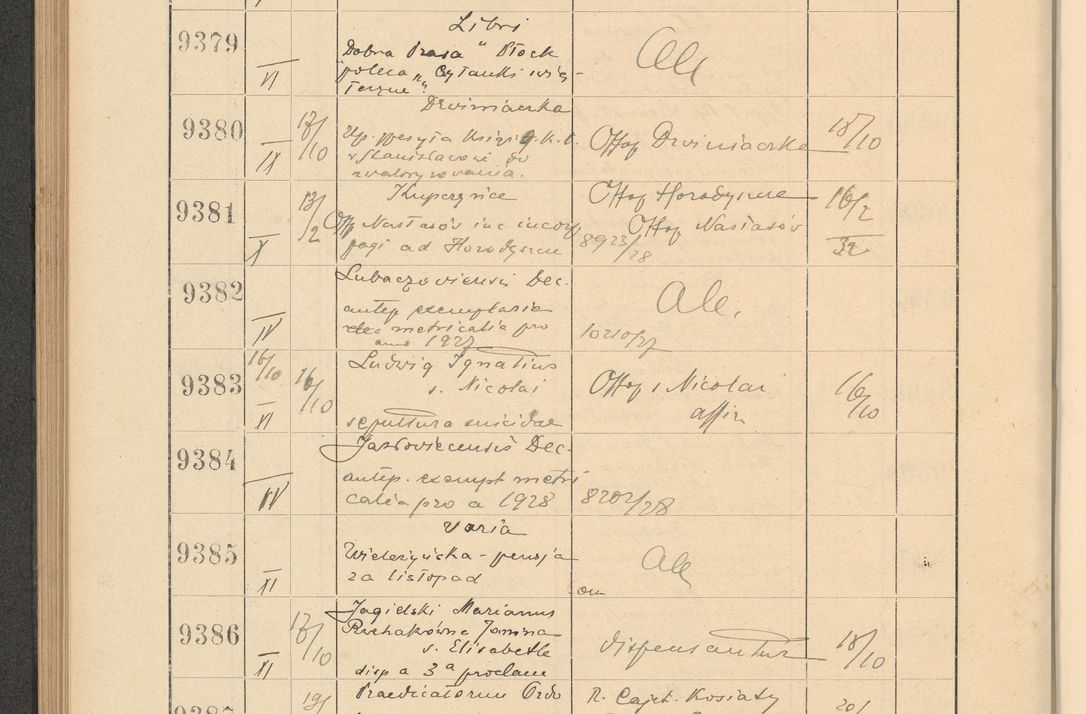 9379
VI
Libri
Dobra Prasa " Płock
poleca „Czytanki
Ale
9380
IX
17/10
Dzwiniaczka
Up. Książ
w Stanisławowie do
zwaloryzowania.
Offoq Dzwiniaczka
18/10
9381
X
13/2
Kuperznice
Off Nastasów inc. incorp
pagi ad Horodyszcze
Offoq Horodyszcze
Offoq Nastasów
8923/28
16/2
32
9382
IV
Lubaczoviensis Dec.
antep. exemplaria
metricalia pro
anno 1927
Ale.
10210/27
9383
16/10
XI
16/10
Ludwig Ignatius
s. Nicolai
sepultura suicidae
Offoq s Nicolai
affir.
16/10
9384
IV
Jazloviecensis Dec.
antep. exempt metri
calia pro a 1928
8202/28
9385
XI
Varia
Wieleżyńska - pensja
za listopad
Ale
9386
XI
17/10
Jagielski Marianus
Puchakówna Janina
s. Elisabethe
disp a 3ª proclam
dispensantur
18/10
9387
19/
Praedicatorum Ordo
R. Cajet. Kosiaty
20/